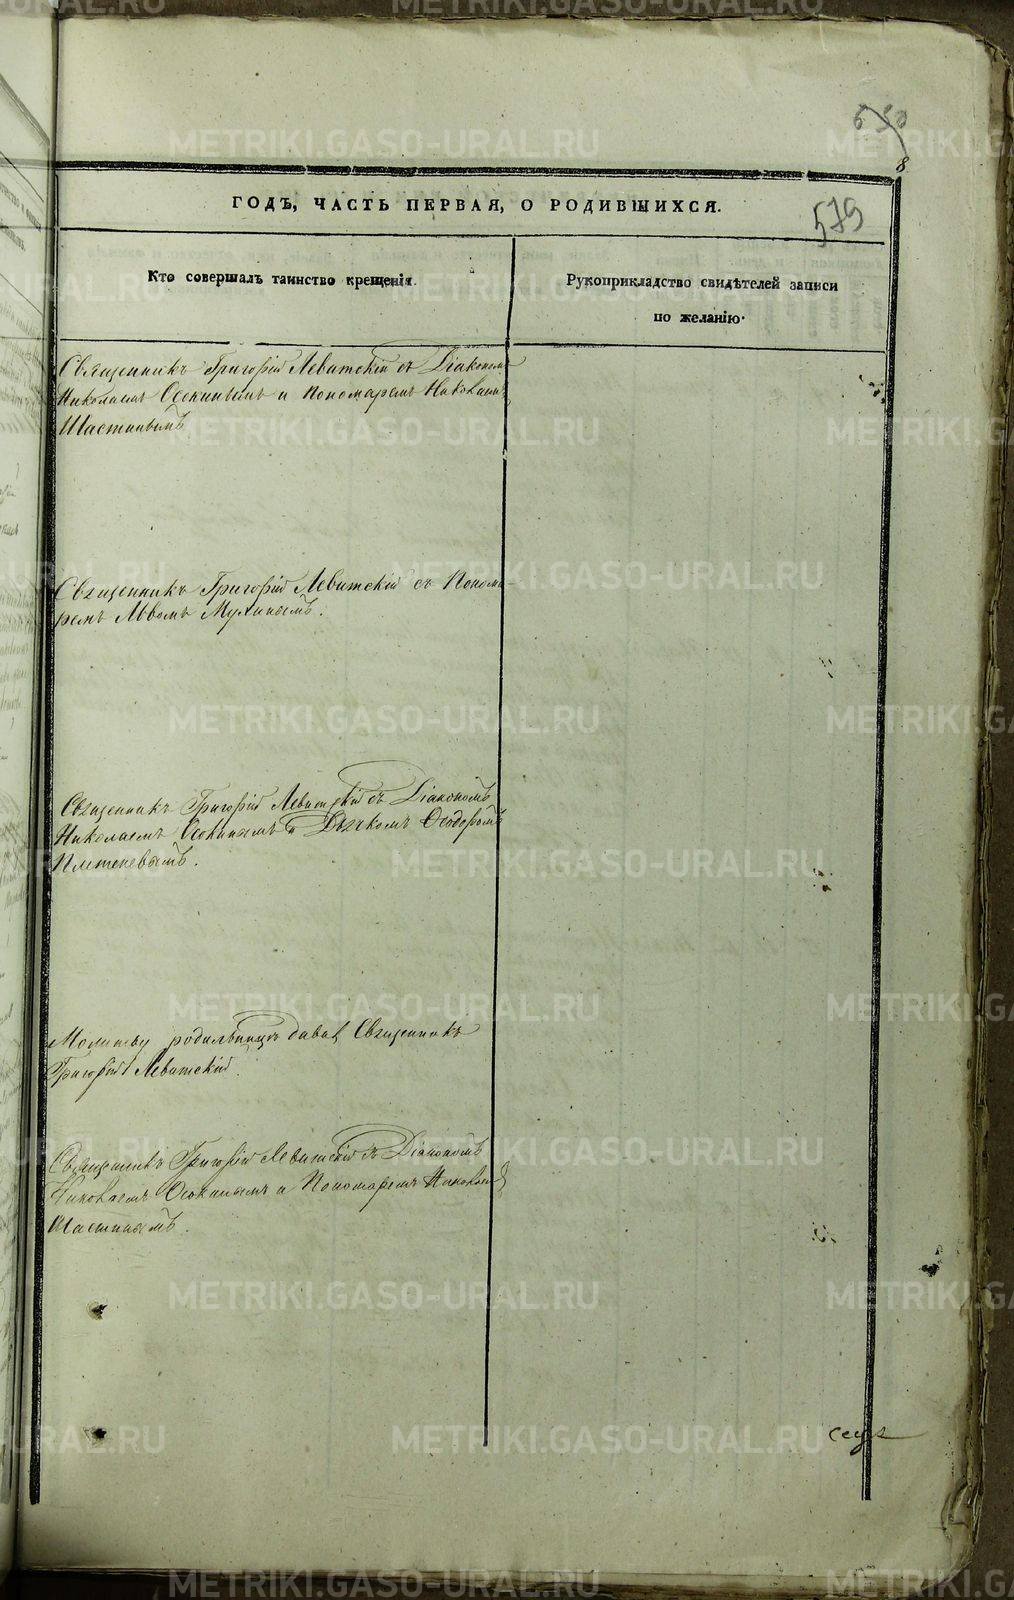 650
8
ГОДЪ, ЧАСТЬ ПЕРВАЯ, О РОДИВШИХСЯ.
579
Кто совершалъ таинство крещенія.
Рукоприкладство свидѣтелей записи
по желанію.
Священникъ Григорій Левитскій съ Діакономъ
Николаемъ Осокинымъ и Пономаремъ Николаемъ
Шастинымъ
Священникъ Григорій Левитскій съ Понома-
ремъ Львомъ Мухинымъ.
Священникъ Григорій Левитскій съ Діакономъ
Николаемъ Осокинымъ и Дьячкомъ Ѳеодоромъ
Плетеневымъ.
Молитву родильницѣ давалъ Священникъ
Григорій Левитскій.
Священникъ Григорій Левитскій съ Діакономъ
Николаемъ Осокинымъ и Пономаремъ Николаемъ
Шастинымъ.
METRIKI.GASO-URAL.RU